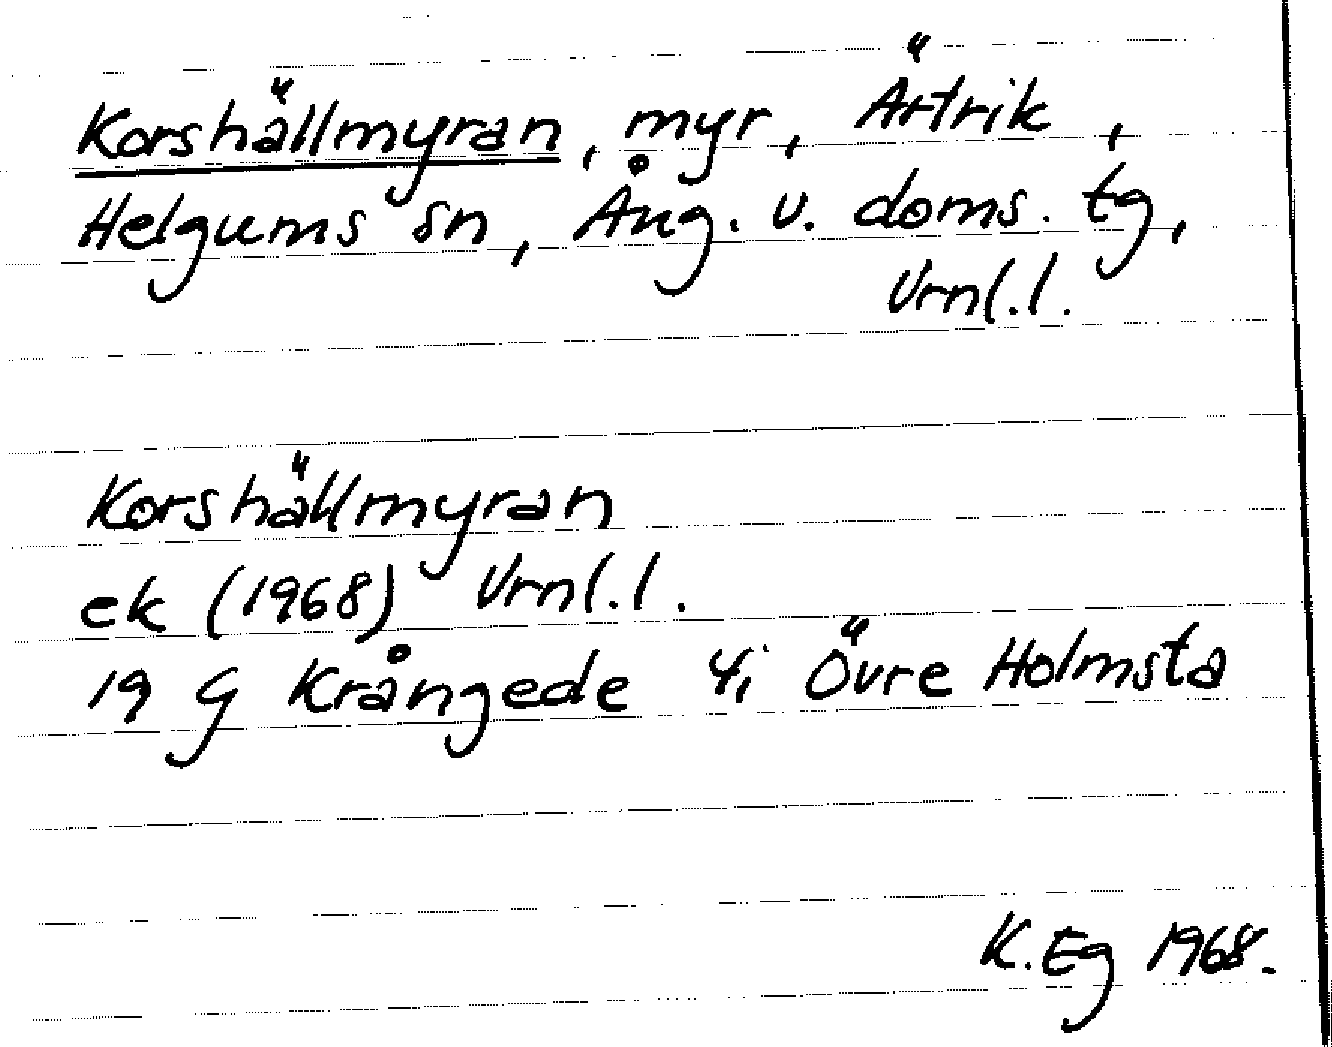 Korshällmyran, myr, Ärtrik,
Helgums sn, Ång. v. doms. tg,
Vrnl.l.
Korshällmyran
ek (1968) Vrnl.l.
19 G Krångede 4i Övre Holmsta
K. Eg 1968.